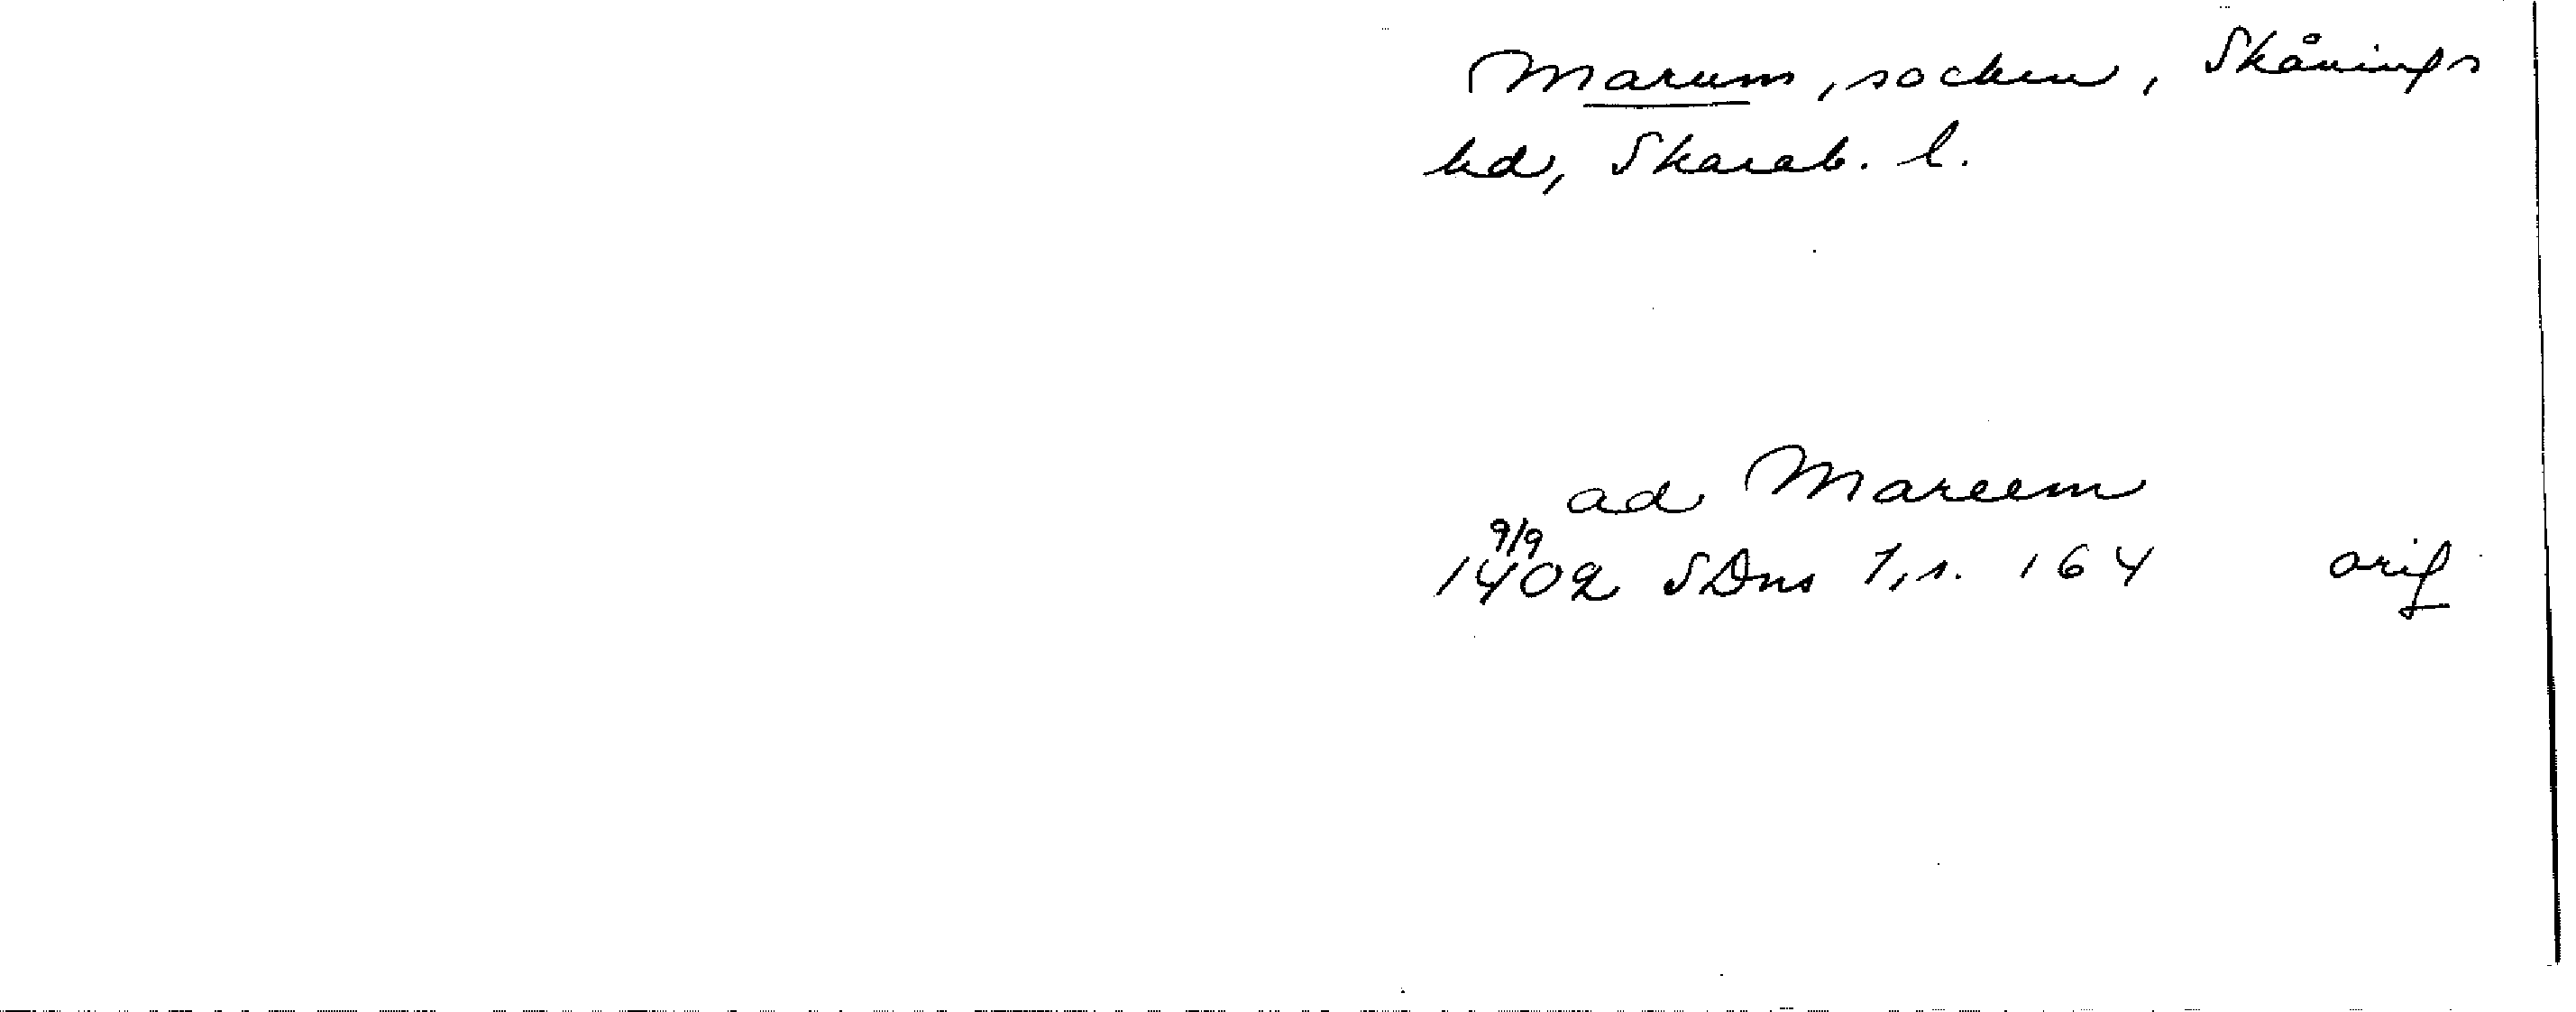 Marum, socken, Skånings
hd, Skarab. l.
ad Mareem
9/9
1402 SDns 1, s. 164 orig